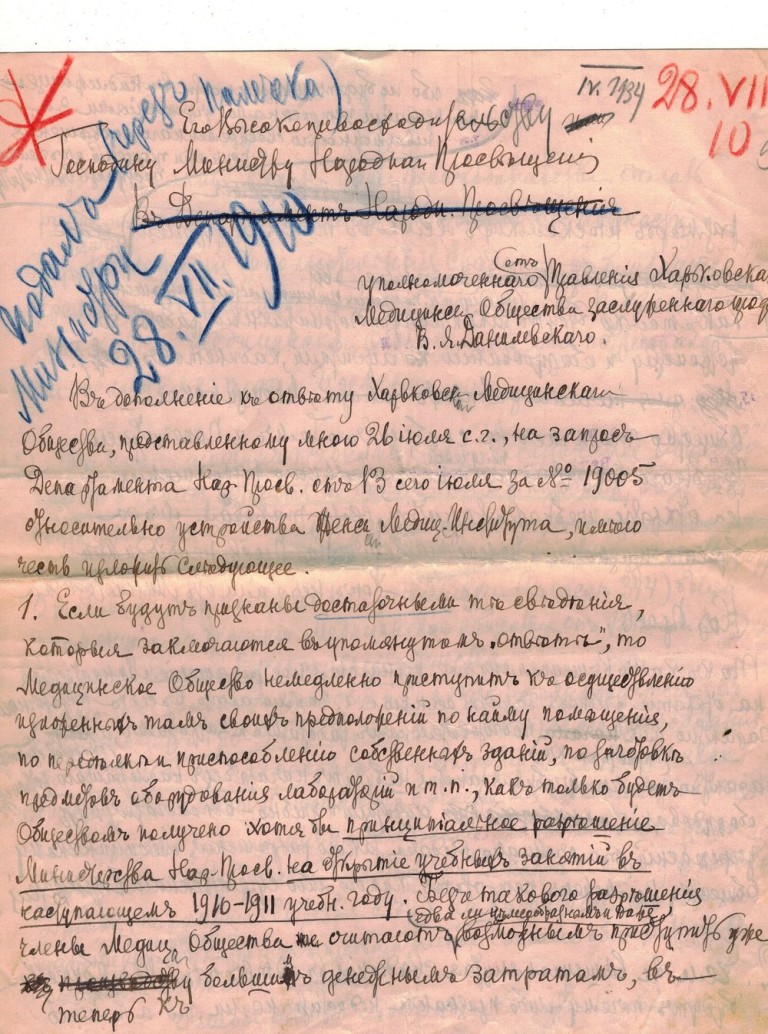 28. VII
10
подалъ (черезъ
Министру
28. VII. 1910
Его Высокопревосходительству
Господину Министру Народнаго Просвѣщенія
Въ Департаментъ Народн. Просвѣщенія
уполномоченнаго отъ Правленія Харьковскаго
Медицинск. Общества заслуженнаго проф.
В. Я. Данилевскаго.
Въ дополненіе къ отвѣту Харьковск. Медицинскаго
Общества, представленному мною 26 іюля с.г., на запросъ
Департамента Нар. Просв. отъ 13 сего іюля за № 19005
относительно устройства Женск. Медиц. Института, имѣю
честь изложить слѣдующее.
1. Если будутъ признаны достаточными тѣ свѣдѣнія,
которыя заключаются въ упомянутомъ „отвѣтѣ", то
Медицинское Общество немедленно приступитъ къ осуществленію
изложенныхъ тамъ своихъ предположеній по найму помѣщенія,
по приспособленію собственныхъ зданій, по заготовкѣ
предметовъ оборудованія лабораторій и т.п., какъ только будетъ
Обществомъ получено хотя бы принципіальное разрѣшеніе
Министерства Нар. Просв. на открытіе учебныхъ занятій въ
наступающемъ 1910-1911 учебн. году. Безъ таковаго разрѣшенія
едва ли цѣлесообразнымъ и даже
члены Медиц. Общества не считаютъ возможнымъ приступить уже
большимъ денежнымъ затратамъ, въ
теперь къ